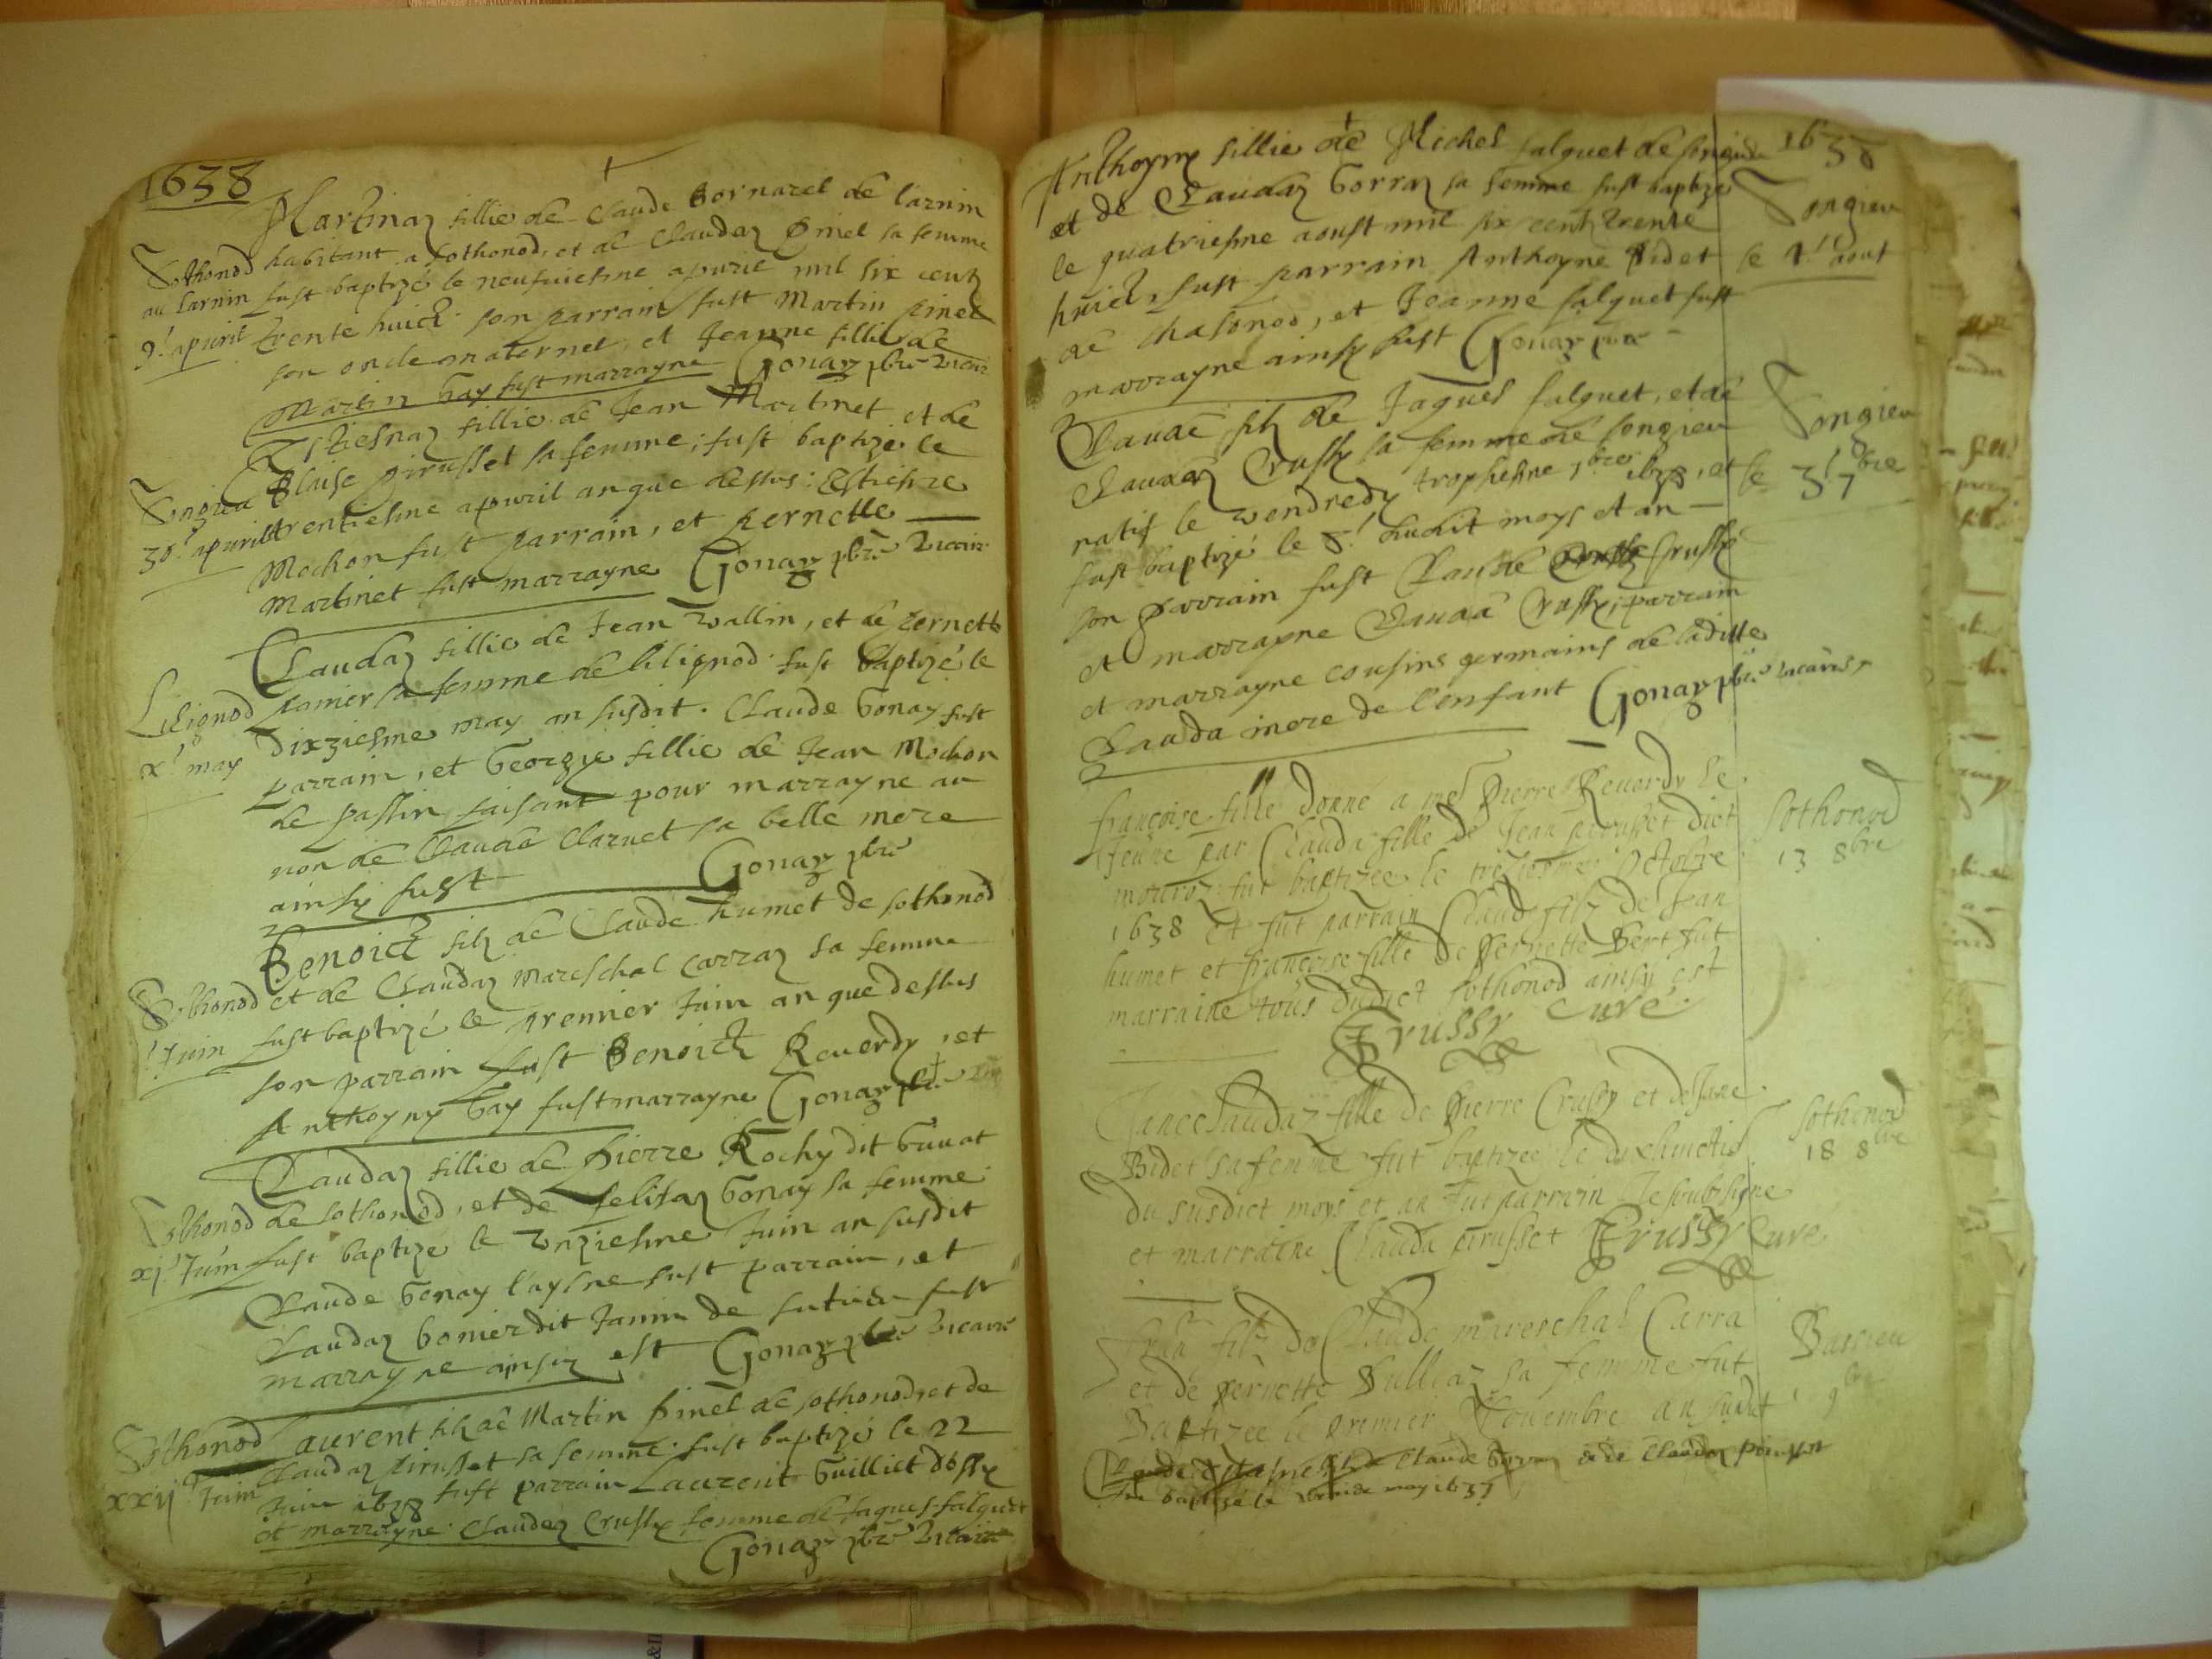 1638
Martinaz fillie de Claude Bornarel de larnin
Sothonod habitant a Sothonod, et de Claudaz Pinel sa femme
au Larnin fust baptizé le neufuiesme apuril mil six centz
9.e apuril trente huict. son parrain fust Martin pinel
son oncle maternel, et Jeanne fillie de
Martin Gay fust marrayne Gonay pbre vicaire
Estiesnaz fillie de Jean Martinet et de
Songieu Blaise pirusset sa femme; fust baptizé le
30.e apuril trentiesme apuril an que dessus: Estiesne
Mochon fust parrain, et pernette
Martinet fust marrayne Gonay pbre vicaire
Claudaz fillie de Jean vallin, et de pernette
Lilignod sa femme de lilignod. fust baptizé le
x.e may dixziesme may an susdit. Claude Gonay fust
parrain, et George fillie de Jean Mochon
de passin faisant pour marrayne au
non de Claude Claruet sa belle mere
ainsy fust Gonay pbre
Benoict filz de Claude humet de sothonod
Sothonod et de Claudaz mareschal carraz sa femme
1.e Juin fust baptizé le premier Juin an que dessus
son parrain fust Benoict Reuerdy, et
Anthoyny Gay fust marrayne Gonay pbre
Claudaz fillie de pierre Rochy dit Guuat
Sothonod de sothonod, et de felisaz Gonay sa femme
xj.e Juin fust baptizé le vnziesme Juin an susdit
Claude Gonay l'aysne fust parrain, et
Claudaz bonier dit Janin de sutrieu fust
marrayne ainsiz est Gonay pbre vicaire
Sothonod Laurent filz de Martin pinel de sothonod, et de
xxij Juin Claudaz pirusset sa femme. fust baptizé le 22
Juin 1638 fust parrain Laurent Guilliet dossy
et marrayne. Claudaz Crussy femme de Jaques falquet
Gonay pbre vicaire
Anthoyny fillie de Michel falquet de songieu 1638
et de Claudaz Gorraz sa femme fust baptizé Songieu
le quatriesme aoust mil six centz trente
huict, fust parrain Anthoyne Bidet le 4.e aout
de chasonod, et Jeanne falquet fust
marrayne ainsy fust Gonay pbre
Claude filz de Jaques falquet, et de
Claudaz Crussy sa femme de songieu Songieu
natif le vendredy troysiesme 7bre 1638, et le 3.e 7bre
fust baptizé le 8.e dudit moys et an
son parrain fust Claude Crussy
et marrayne Claudaz Crussy, parrain
et marrayne cousins germains de laditte
Clauda mere de l'enfant Gonay pbre vicaire
francoise fille donne a me Pierre Reuerdy le
Jeune par Clauda fille de Jean pirusset dict Sothonod
mouroz fut baptizee le treziesme Octobre 13 8bre
1638 et fut parrain Claude filz de Jean
humet et francoise fille de pernette Bert fut
marraine tous dudict sothonod ainsy est
Crussy Curé
Janeclaudaz fille de Pierre Crussy et de Jane
Bidet sa femme fut baptizee le dixhuictie Sothonod
du susdict moys et an fut parrain Je soubsigne 18 8bre
et marraine Clauda pirusset Crussy Curé
Jean filz de Claude mareschal Carra
et de pernette Bulliaz sa femme fut Bassieu
Baptizee le premier Nouembre an susdit 1 9bre
Claude Claude et de Claudaz pirusset
fut baptizé le may 1637